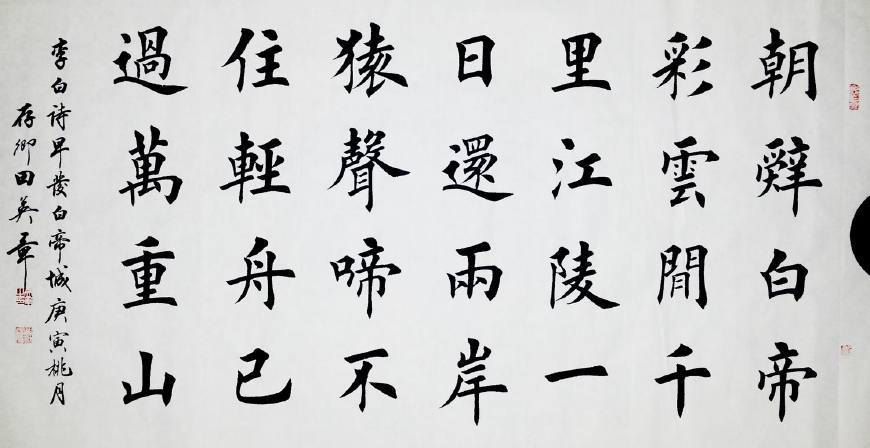 朝辤白帝
彩雲間千
里江陵一
日還兩岸
猿聲啼不
住輕舟已
過萬重山
李白詩早發白帝城庚寅桃月
存卿田英章